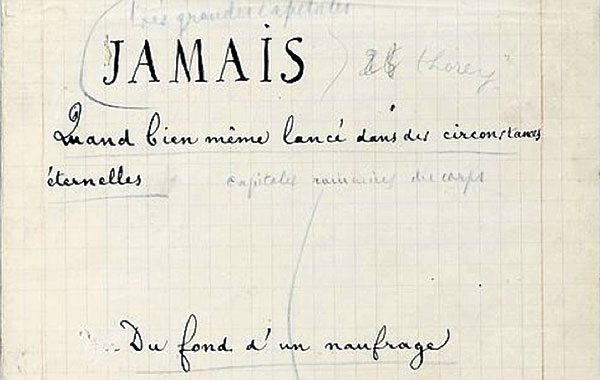 Très grandes capitales
JAMAIS
Quand bien même lancé dans des circonstances
éternelles
capitales romaines du corps
Du fond d'un naufrage